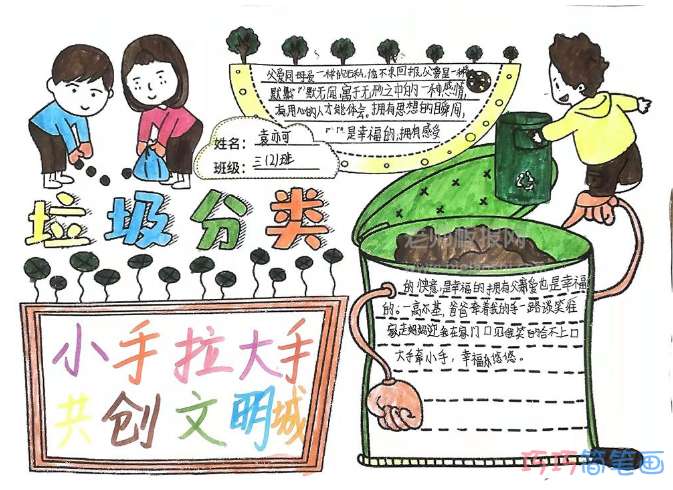 父爱同母爱一样的无私,他不求回报,父爱是一种
默默无闻,寓于无形之中的一种感情,
有用心的人才能体会。拥有思想的瞬间,
是幸福的,拥有感受
姓名:袁亦可
班级:三(2)班
垃圾分类
老师板报网
的快意,是幸福的,拥有父亲爱也是幸福
的。一高示基,爸爸牵着我的手一路谈笑往
大手牵小手,幸福悠悠。
小手拉大手
共创文明城
巧巧简笔画